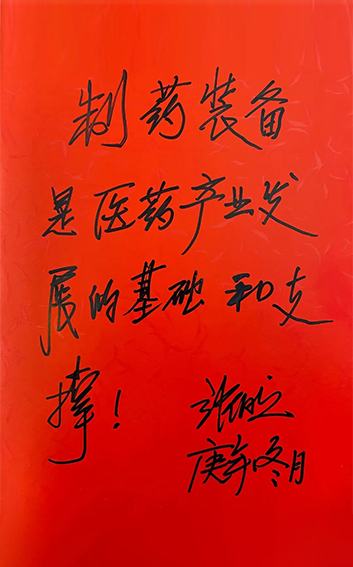 制药装备
是医药产业发
展的基础和支
撑！
庚年冬月